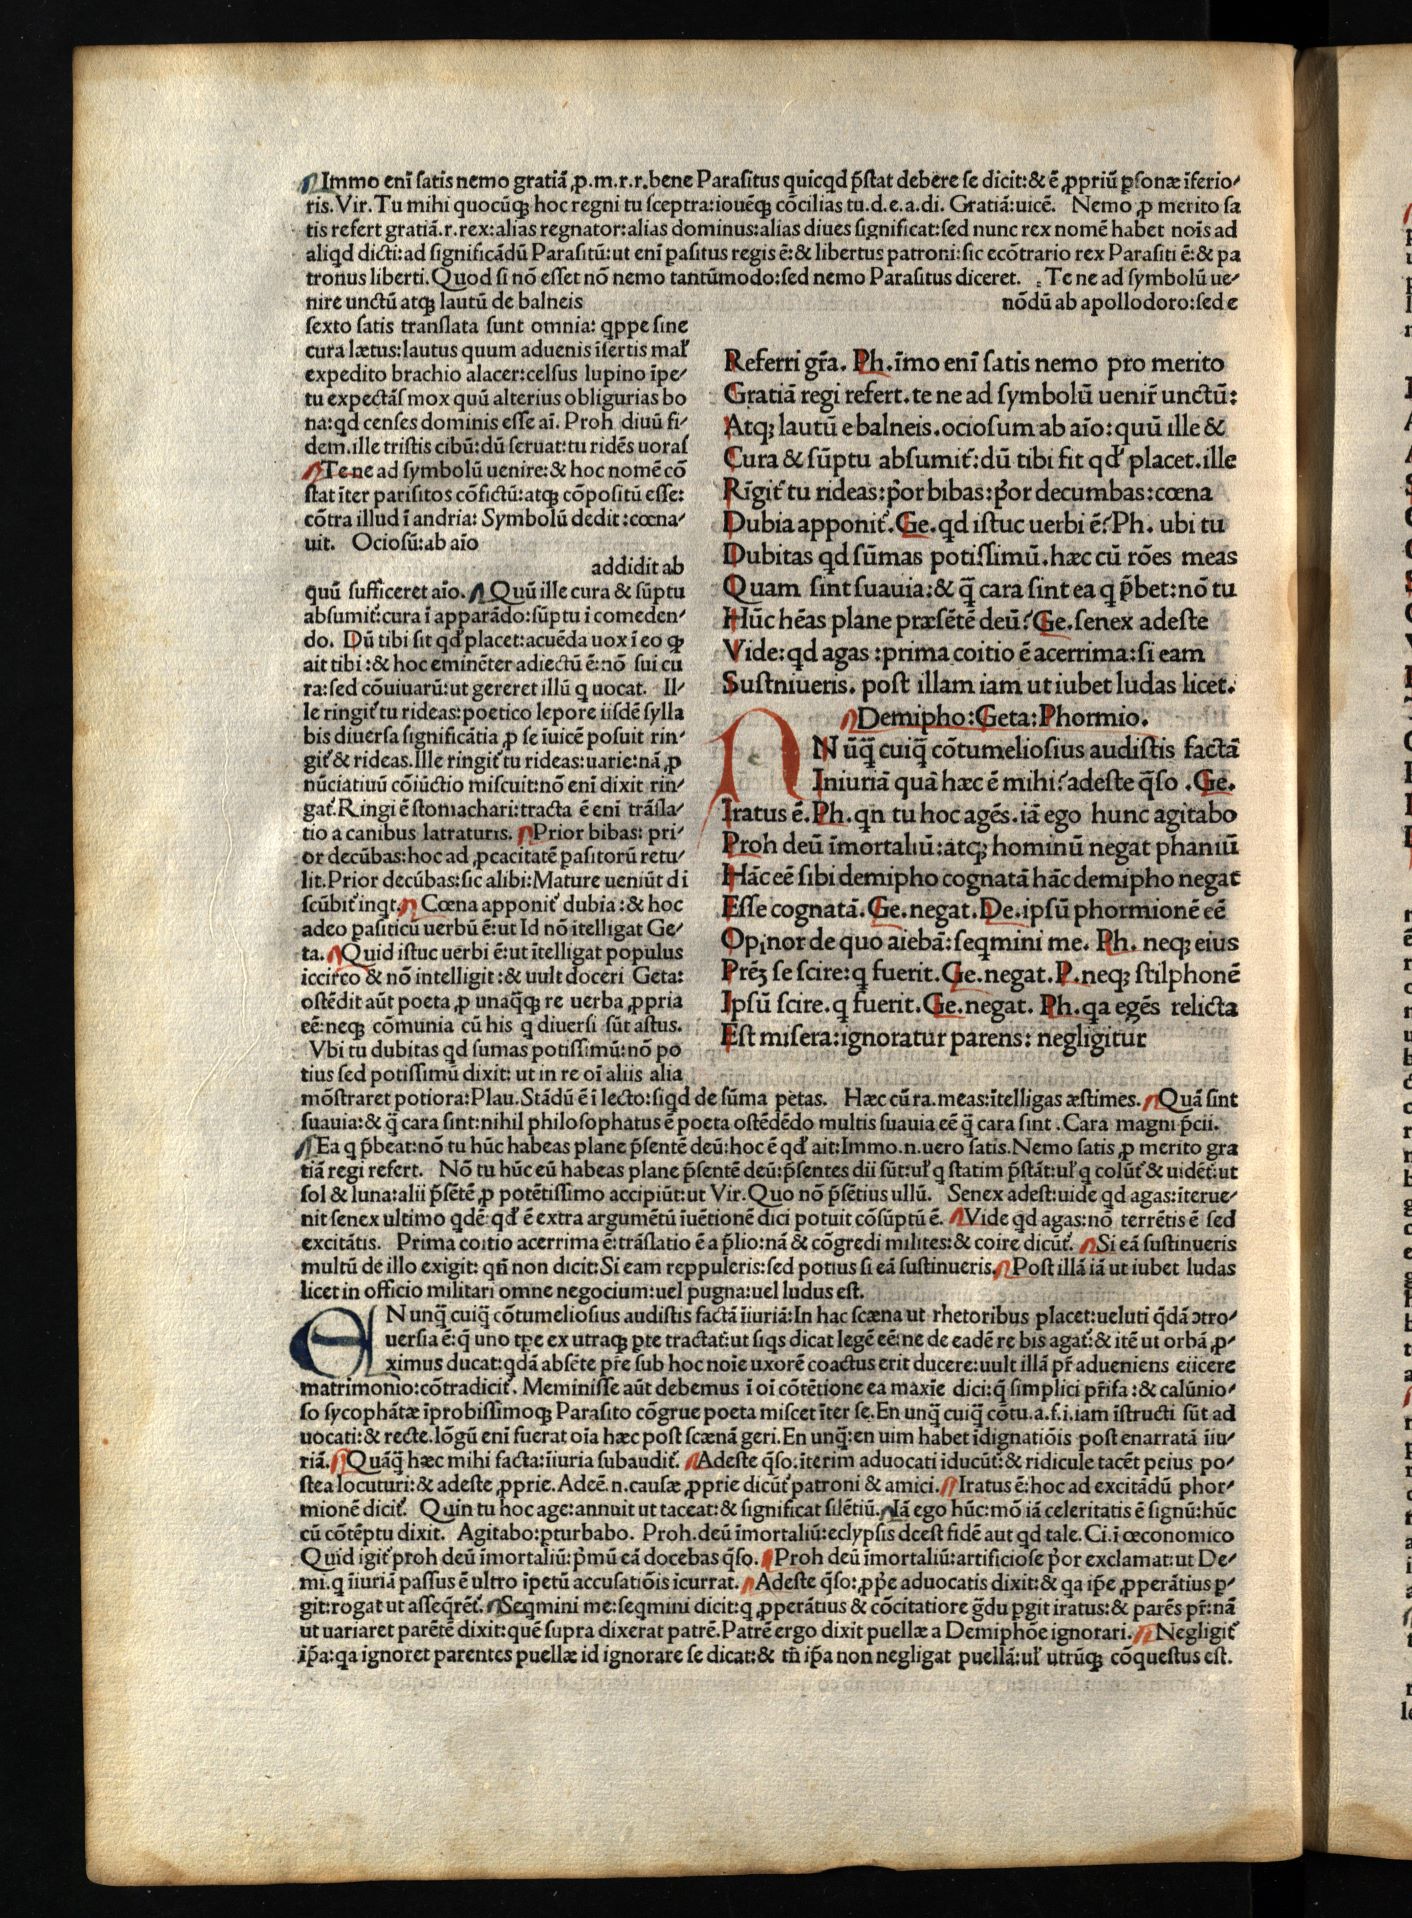 Immo enī satis nemo gratiā ꝓ.m.r.r.bene Parasitus quicqd p̄stat debere se dicit:& ē ꝓpriū ꝑsonæ īferio/
ris.Vir.Tu mihi quocūqꝫ hoc regni tu sceptra:iouēqꝫ cōcilias tu.d.e.a.di. Gratiā:uicē. Nemo ꝓ merito sa
tis refert gratiā.r.rex:alias regnator:alias dominus:alias diues significat:sed nunc rex nomē habet nois̄ ad
aliqd dicti:ad significādū Parasitū:ut enī ꝑasitus regis ē:& libertus patroni:sic ecōtrario rex Parasiti ē:& pa
tronus liberti.Quod si nō esset nō nemo tantūmodo:sed nemo Parasitus diceret. Te ne ad symbolū ue/
nire unctū atqꝫ lautū de balneis nōdū ab apollodoro:sed e
sexto satis translata sunt omnia: qppe sine
cura lætus:lautus quum aduenis īsertis mal̄
expedito brachio alacer:celsus lupino īpe/
tu expectās mox quū alterius obligurias bo
na:qd censes dominis esse aī. Proh diuū fi/
dem.ille tristis cibū:dū seruat:tu ridēs uoras
Te ne ad symbolū uenire:& hoc nomē cō
stat īter parisitos cōfictū:atqꝫ cōpositū esse:
cōtra illud ī andria: Symbolū dedit:cœna/
uit. Ociosū:ab aīo
addidit ab
quū sufficeret aīo. Quū ille cura & sūptu
absumit̄:cura ī apparādo:sūptu ī comeden/
do. Dū tibi sit qd̄ placet:acuēda uox ī eo qꝫ
ait tibi:& hoc eminēter adiectū ē:nō sui cu
ra:sed cōuiuarū:ut gereret illū q uocat. Il/
le ringit̄ tu rideas:poetico lepore iisdē sylla
bis diuersa significātia ꝓ se īuicē posuit rin/
git̄ & rideas.Ille ringit̄ tu rideas:uarie:nā ꝓ
nūciatiuū cōiūctio miscuit:nō enī dixit rin/
gat̄.Ringi ē stomachari:tracta ē enī trāsla/
tio a canibus latraturis. Prior bibas: pri/
or decūbas:hoc ad ꝓcacitatē ꝑasitorū retu/
lit.Prior decūbas:sic alibi:Mature ueniūt di
scūbit̄ inqt. Cœna apponit̄ dubia:& hoc
adeo ꝑasiticū uerbū ē:ut Id nō ītelligat Ge/
ta. Quid istuc uerbi ē:ut ītelligat populus
iccirco & nō intelligit:& uult doceri Geta:
ostēdit aūt poeta ꝓ unaq̄qꝫ re uerba ꝓpria
eē:neqꝫ cōmunia cū his q diuersi sūt astus.
Vbi tu dubitas qd sumas potissimū:nō po
tius sed potissimū dixit: ut in re oī aliis alia
Referri gr̄a. Ph.īmo enī satis nemo pro merito
Gratiā regi refert.te ne ad symbolū uenir̄ unctū:
Atqꝫ lautū e balneis.ociosum ab aīo:quū ille &
Cura & sūptu absumit̄:dū tibi fit qd̄ placet.ille
Rīgit̄ tu rideas:p̄or bibas:p̄or decumbas:cœna
Dubia apponit̄.Ge.qd istuc uerbi ē?Ph. ubi tu
Dubitas qd sūmas potissimū.hæc cū rōes meas
Quam sint suauia:& q̄ cara sint ea q p̄bet:nō tu
Hūc hēas plane præsētē deū?Ge.senex adeste
Vide:qd agas:prima coitio ē acerrima:si eam
Sustniueris. post illam iam ut iubet ludas licet.
Demipho:Geta:Phormio.
N ūq̄ cuiq̄ cōtumeliosius audistis factā
Iniuriā quā hæc ē mihi?adeste q̄so .Ge.
Iratus ē.Ph.qn tu hoc agēs.iā ego hunc agitabo
Proh deū īmortaliū:atqꝫ hominū negat phaniū
Hāc eē sibi demipho cognatā hāc demipho negat
Esse cognatā.Ge.negat.De.ipsū phormionē eē
Opinor de quo aiebā:seqmini me. Ph. neqꝫ eius
Prēꝫ se scire:q fuerit.Ge.negat.P.neqꝫ stilphonē
Ipsū scire.q fuerit.Ge.negat. Ph.qa egēs relicta
Est misera:ignoratur parens: negligitur
mōstraret potiora:Plau.Stādū ē ī lecto:siqd de sūma petas. Hæc cū ra.meas:ītelligas æstimes. Quā sint
suauia:& q̄ cara sint:nihil philosophatus ē poeta ostēdēdo multis suauia eē q̄ cara sint .Cara magni p̄cii.
Ea q p̄beat:nō tu hūc habeas plane p̄sentē deū:hoc ē qd̄ ait:Immo.n.uero satis.Nemo satis ꝓ merito gra
tiā regi refert. Nō tu hūc eū habeas plane p̄sentē deū:p̄sentes dii sūt:ul̄ q statim p̄stāt:ul̄ q colūt̄ & uidēt̄:ut
sol & luna:alii p̄sētē ꝓ potētissimo accipiūt:ut Vir.Quo nō p̄sētius ullū. Senex adest:uide qd agas:īterue/
nit senex ultimo qdē:qd̄ ē extra argumētū īuētionē dici potuit cōsūptū ē. Vide qd agas:nō terrētis ē sed
excitātis. Prima coitio acerrima ē:trāslatio ē a p̄lio:nā & cōgredi milites:& coire dicūt̄. Si eā sustinueris
multū de illo exigit: qn̄ non dicit:Si eam reppuleris:sed potius si eā sustinueris. Post illā iā ut iubet ludas
licet in officio militari omne negocium:uel pugna:uel ludus est.
EN unq̄ cuiq̄ cōtumeliosius audistis factā īiuriā:In hac scæna ut rhetoribus placet:ueluti q̄dā ɔtro/
uersia ē:q̄ uno tꝑe ex utraqꝫ ꝑte tractat̄:ut siqs dicat legē eē:ne de eadē re bis agat̄:& itē ut orbā ꝓ/
ximus ducat:qdā absēte pr̄e sub hoc noīe uxorē coactus erit ducere:uult illā pr̄ adueniens eiicere
matrimonio:cōtradicit̄. Meminisse aūt debemus ī oī cōtētione ea maxīe dici:q̄ simplici pr̄ifa:& calūnio/
so sycophātæ īprobissimoqꝫ Parasito cōgrue poeta miscet īter se.En unq̄ cuiq̄ cōtu.a.f.i.iam īstructi sūt ad
uocati:& recte.lōgū enī fuerat oīa hæc post scænā geri.En unq̄:en uim habet īdignatiōis post enarratā īiu/
riā. Quāq̄ hæc mihi facta:īiuria subaudit̄. Adeste q̄so.īterim aduocati īducūt̄:& ridicule tacēt peius po/
stea locuturi:& adeste ꝓprie.Adeē.n.causæ ꝓprie dicūt̄ patroni & amici. Iratus ē:hoc ad excitādū phor/
mionē dicit̄. Quin tu hoc age:annuit ut taceat:& significat silētiū. Iā ego hūc:mō iā celeritatis ē signū:hūc
cū cōtēptu dixit. Agitabo:ꝑturbabo. Proh.deū īmortaliū:eclypsis dcest fidē aut qd tale.Ci.ī œconomico
Quid igit̄ proh deū īmortaliū:p̄mū eā docebas q̄so. Proh deū īmortaliū:artificiose p̄or exclamat:ut De/
mi.q īiuriā passus ē ultro īpetū accusatiōis īcurrat. Adeste q̄so:ꝓpe aduocatis dixit:& qa ip̄e ꝓperātius ꝑ/
git:rogat ut asseq̄rēt̄. Seqmini me:seqmini dicit:q ꝓperātius & cōcitatiore g̅du ꝑgit iratus:& parēs pr̄:nā
ut uariaret parētē dixit:quē supra dixerat patrē.Patrē ergo dixit puellæ a Demiphōe ignorari. Negligit̄
ip̄a:qa ignoret parentes puellæ id ignorare se dicat:& tn̄ ip̄a non negligat puellā:ul̄ utrūqꝫ cōquestus est.